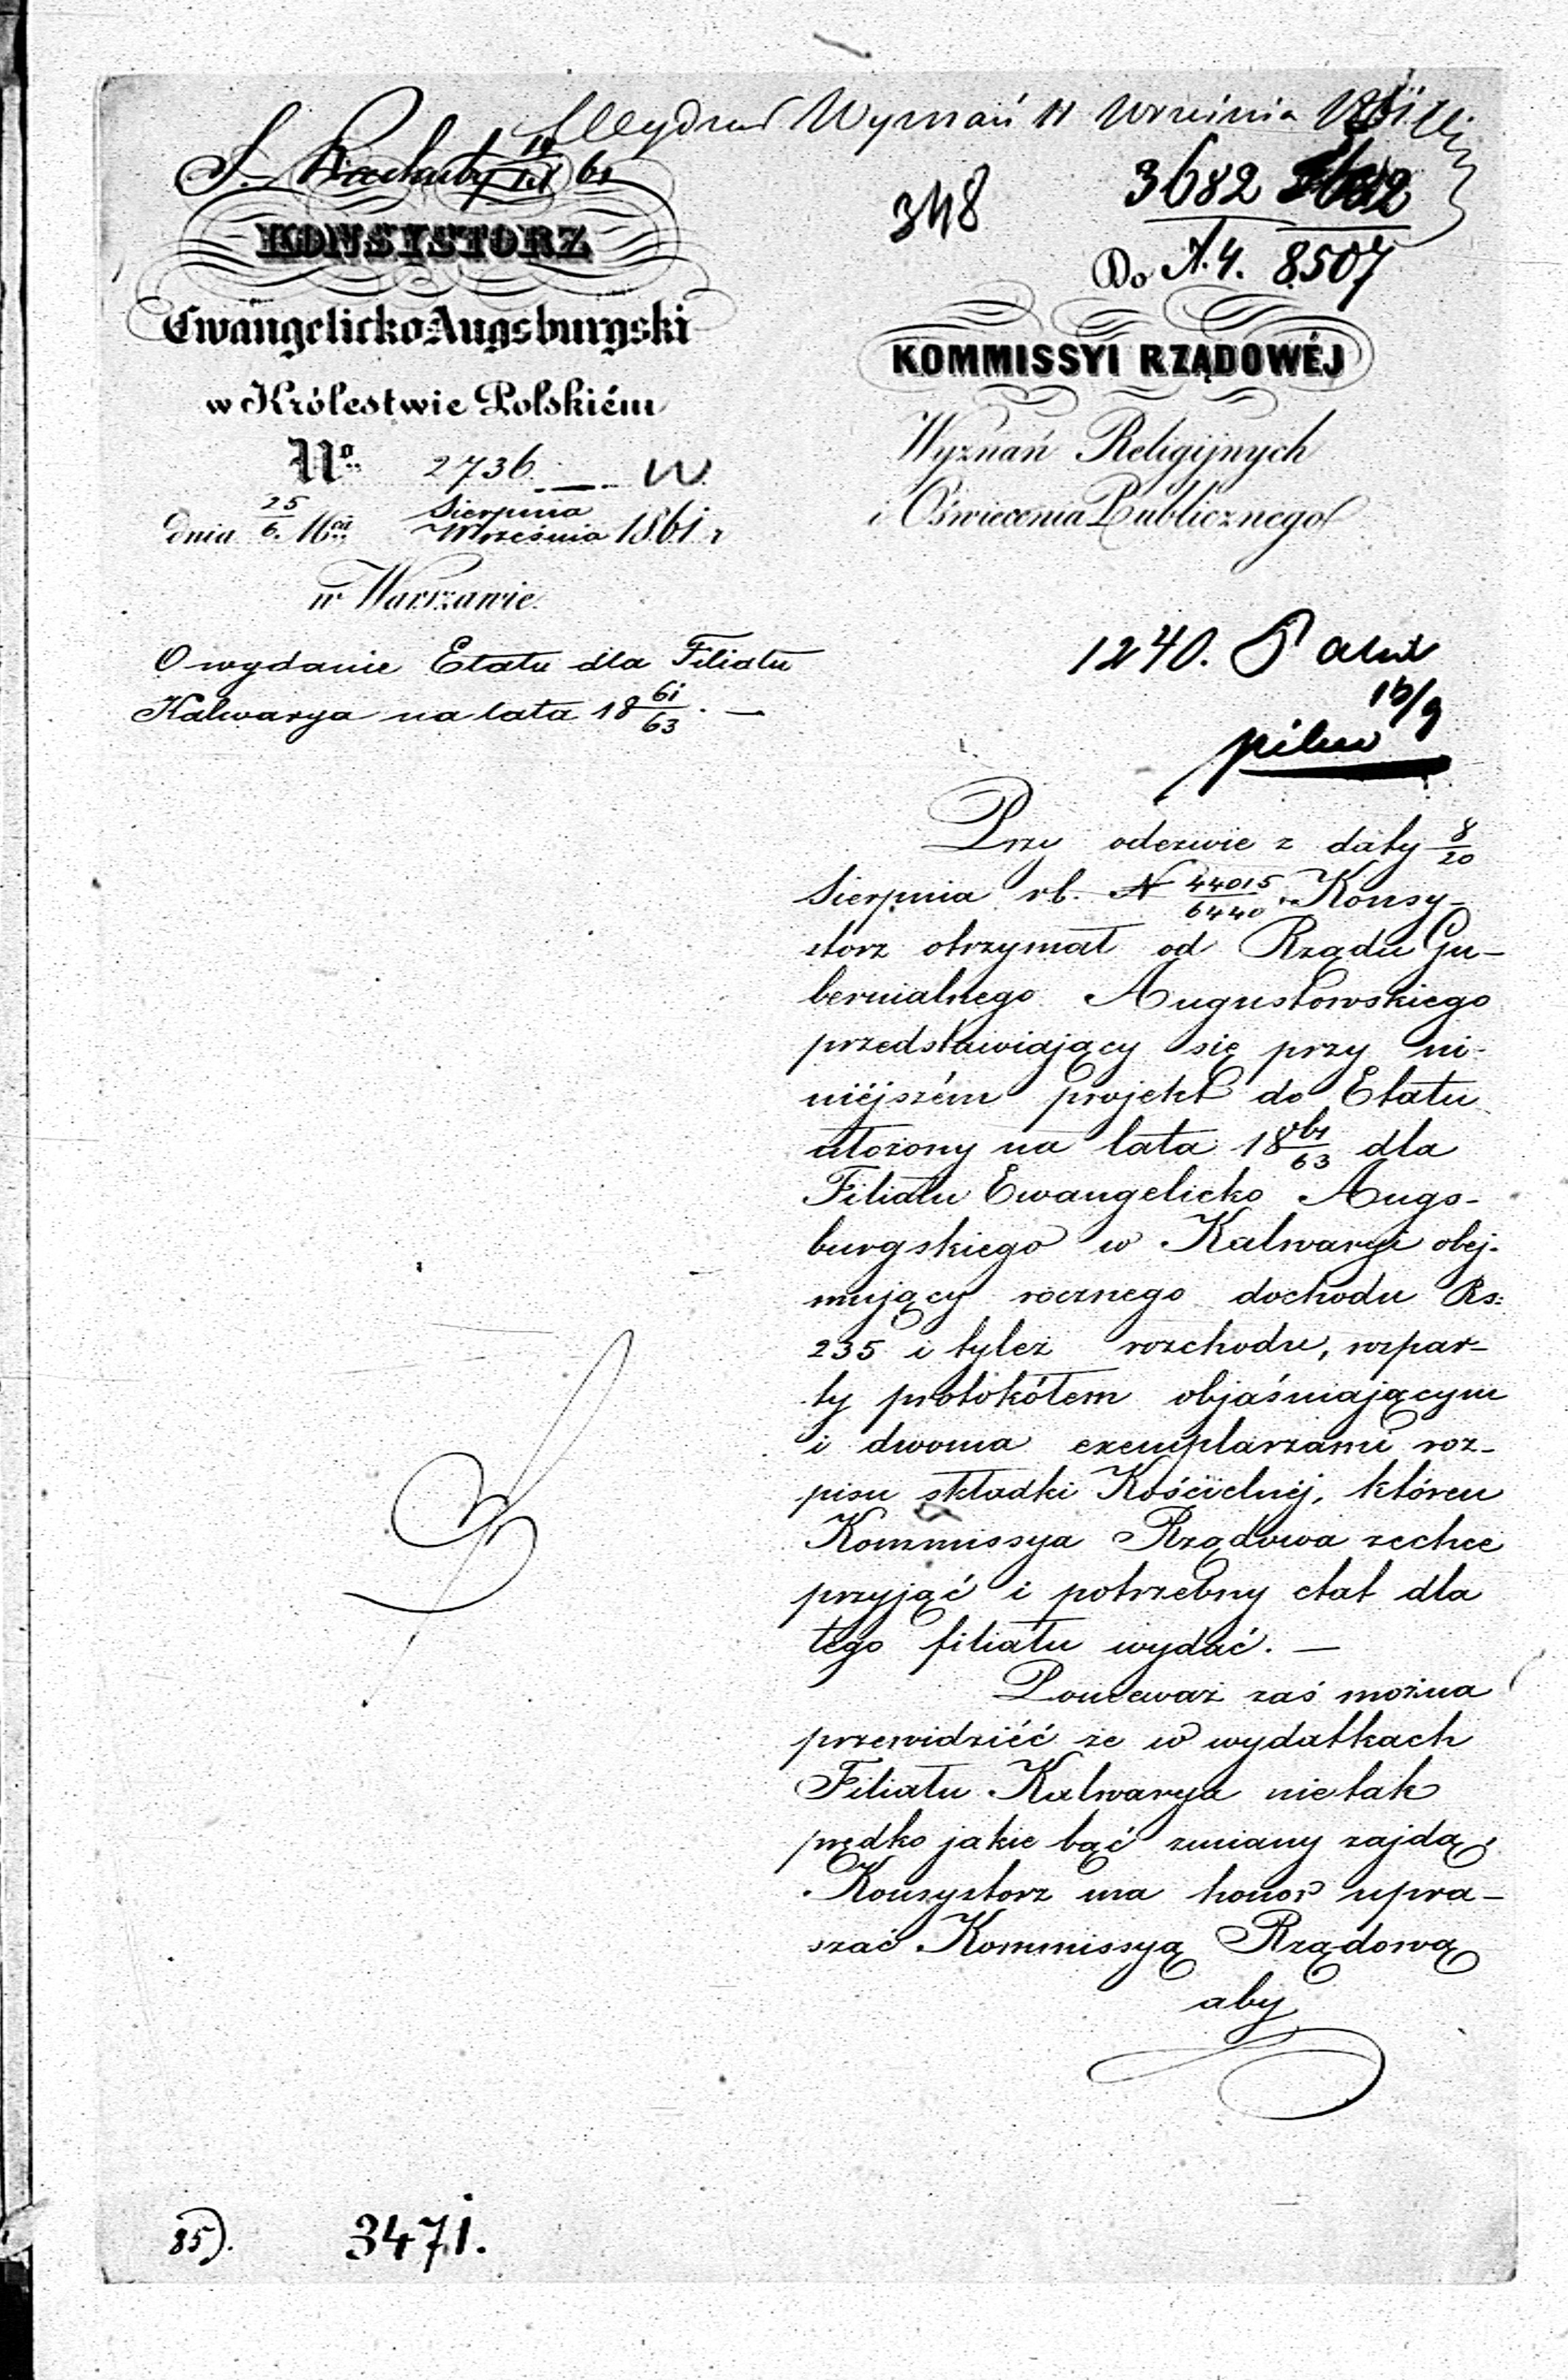 Wyznań 11 Września
348
3682
Do A.4. 8507
KONSYSTORZ
Ewangelicko-Augsburgski
w Królestwie Polskiém
No. 2736. W.
dnia 25/6. Mca Sierpnia/Września 1861 r
w Warszawie.
O wydanie Etatu dla Filiału
Kalwarya na lata 18 61/63. —
KOMMISSYI RZĄDOWÉJ
Wyznań Religijnych
i Oświecenia Publicznego
1240.
16/9
pilno
Przy odezwie z daty 8/20
Sierpnia rb. N 44015/6440 Konsy-
storz otrzymał od Rządu Gu-
bernialnego Augustowskiego
przedstawiający się przy ni-
niéjszém projekt do Etatu
ułożony na lata 18 61/63 dla
Filiału Ewangelicko Augs-
burgskiego w Kalwaryi obej-
mujący rocznego dochodu Rs:
235 i tyleż rozchodu, wspar-
ty protokółem objaśniającym
i dwoma exemplarzami roz-
pisu składki Kościelnéj, któren
Kommissya Rządowa zechce
przyjąć i potrzebny etat dla
tego filiału wydać. —
Ponieważ zaś można
przewidziéć że w wydatkach
Filiału Kalwarya nie tak
prędko jakie bąć zmiany zajdą,
Konsystorz ma honor upra-
szać Kommissyą Rządową
aby
85).
3471.